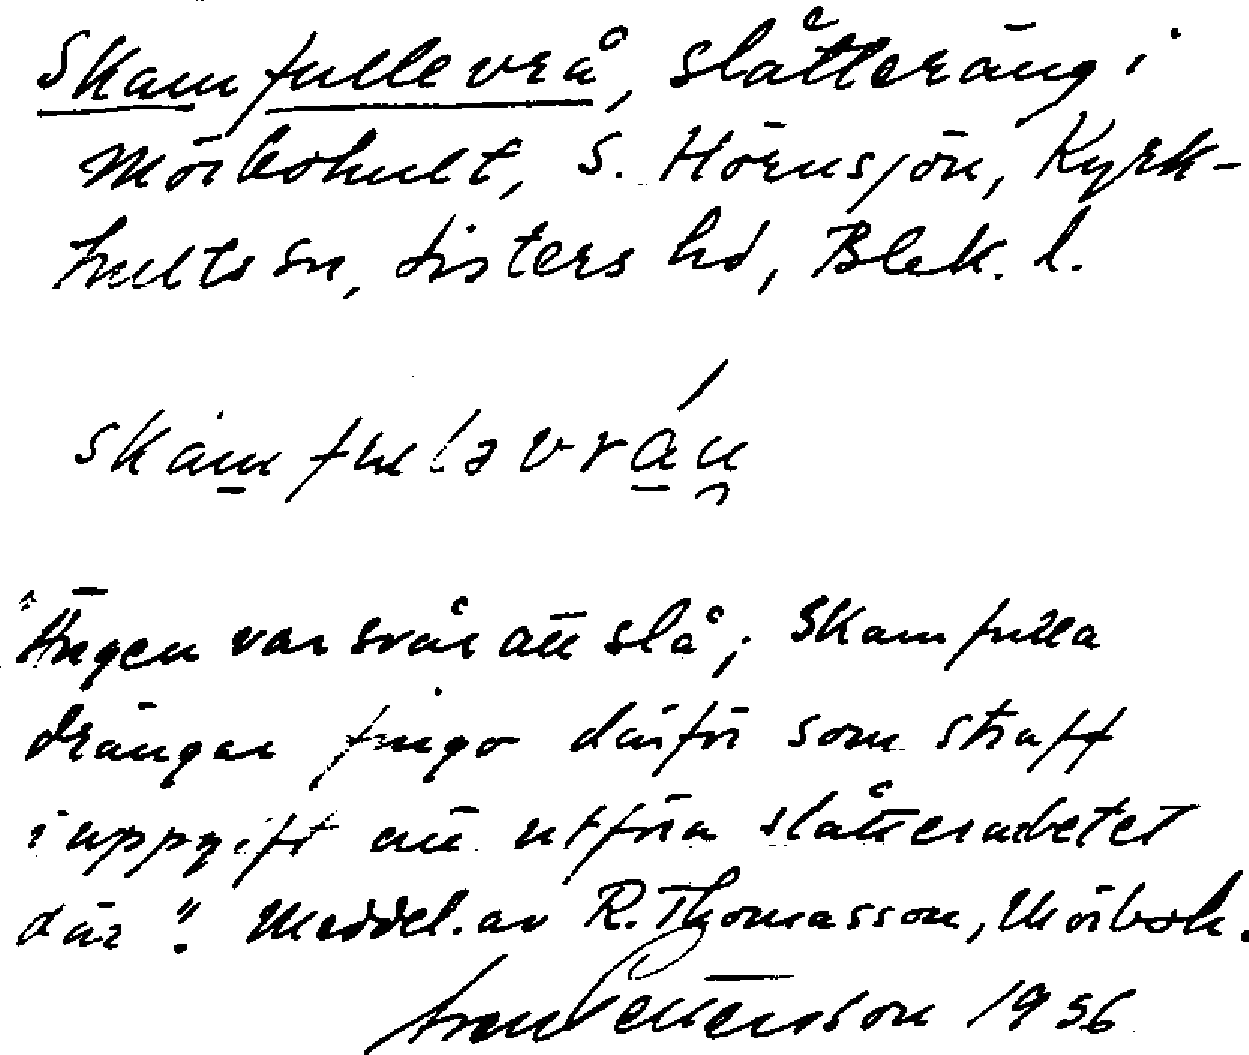 Skamfullevrå, slåtteräng i
Mörbohult, S. Hörnsjön, Kyrk-
hults sn, Listers hd, Blek. l.
skámfuləvrán
"Ängen var svår att slå; skamfulla
drängar fingo därför som straff
i uppgift att utföra slåtterarbetet
där". Meddel. av R. Thomasson, Mörboh.
Pettersson 1936